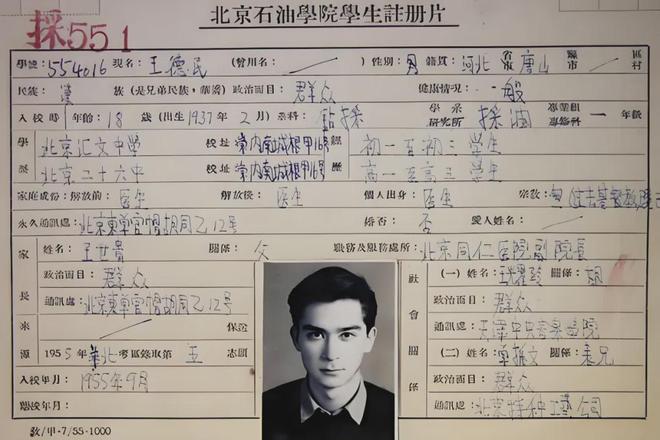 北京石油學院學生註册片
採551
學號:554016 現名:王德民 (曾用名: ) 性别:男 籍貫:河北 省市 唐山 縣市 區村
民族:漢 族(是兄弟民族,華僑)政治面目:群众 健康情况:一般
入校時年龄:18歲(出生1937年2月)系科:钻採 學系研究所 採油 專業組專修科 一 年級
學 北京汇文中学 校址 崇内南城根甲16号 經 初一至初三 学生
歷 北京二十六中 校址 崇内南城根甲16号 歷 高一至高三 学生
家庭成份:解放前:医生 解放後:医生 個人出身:医生 宗教:無
永久通訊處:北京東单官帽胡同乙12号 婚否:否 愛人姓名:
家長 姓名:王世貴 關係:父 職務及服務處所:北京同仁医院副院長
政治面目:群众
通訊處:北京東单官帽胡同乙12号
來源 保送
1955年華北考區錄取第五志願
入校年月:1955年9月
離校年月:
社會關係 (一)姓名: 關係:姐
政治面目:群众
通訊處:天津中央音樂学院
(二)姓名: 關係:表兄
政治面目:群众
通訊處:北京特种工藝公司
教/甲·7/55-1000